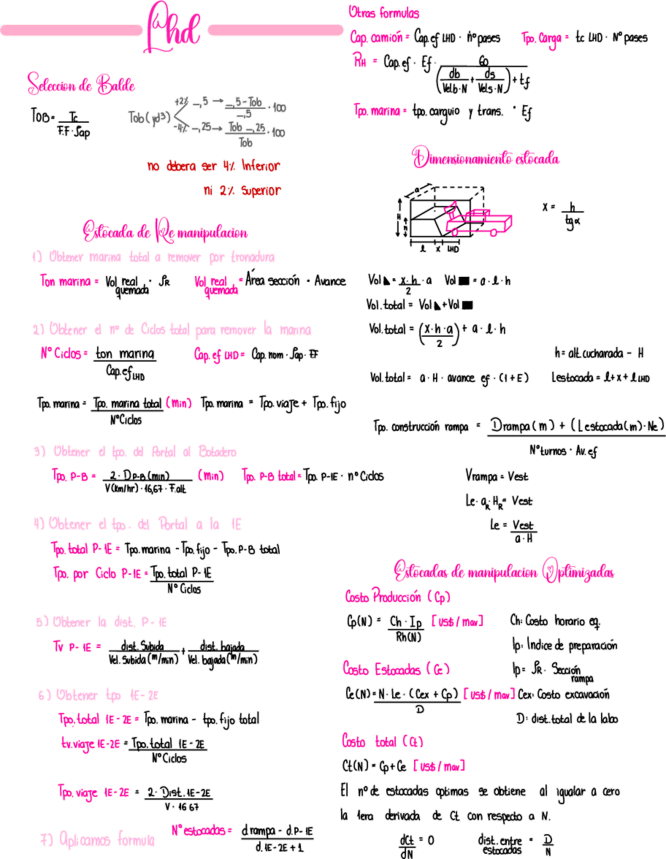 Lhd
Seleccion de Balde
TOB = Tc / F.F · Sap
Tob (yd3) +2% _,5 → _,5 - Tob / _,5 · 100
-4% _,25 → Tob - _,25 / Tob · 100
no debera ser 4% Inferior
ni 2% Superior
Estocada de Re manipulacion
1) Obtener marina total a remover por tronadura
Ton marina = Vol real quemada · SR Vol real quemada = Área sección · Avance
2) Obtener el nº de Ciclos total para remover la marina
Nº Ciclos = ton marina / Cap. ef LHD Cap. ef LHD = Cap. nom · Sap · FF
Tpo. marina = Tpo. marina total / NºCiclos (min) Tpo. marina = Tpo. viaje + Tpo. fijo
3) Obtener el tpo. del Portal al Botadero
Tpo. P-B = 2 · D P-B (min) / V (km/hr) · 16,67 · F.alt (min) Tpo. P-B total = Tpo. P-IE · nº Ciclos
4) Obtener el tpo. del Portal a la 1E
Tpo. total P-1E = Tpo. marina - Tpo. fijo - Tpo. P-B total
Tpo. por Ciclo P-1E = Tpo. total P-1E / Nº Ciclos
5) Obtener la dist. P-1E
Tv P-1E = dist. Subida / Vel. Subida (m/min) + dist. bajada / Vel. bajada (m/min)
6) Obtener tpo 1E-2E
Tpo. total 1E-2E = Tpo. marina - tpo. fijo total
tv. viaje 1E-2E = Tpo. total 1E-2E / NºCiclos
Tpo. viaje 1E-2E = 2 · Dist. 1E-2E / V · 16 67
7) Aplicamos formula Nº estocadas = d rampa - d. P-1E / d. 1E-2E + 1
Otras formulas
Cap. camión = Cap. ef LHD · nº pases Tpo. Carga = tc LHD · Nº pases
RH = Cap. ef · Ef · 60 / (db / Vel.b · N + ds / Vel.s · N) + tf
Tpo. marina = tpo. carguio y trans. · Ef
Dimensionamiento estocada
a
H
h
l x LHD
x = h / tg α
Vol = x · h / 2 · a Vol = a · l · h
Vol. total = Vol + Vol
Vol. total = (x · h · a / 2) + a · l · h
h = alt. cucharada - H
Vol. total = a · H · avance ef · (1 + E) Lestocada = l + x + l LHD
Tpo. construcción rampa = Drampa (m) + (Lestocada (m) · Ne) / Nºturnos · Av. ef
Vrampa = Vest
Le · aR · HR = Vest
Le = Vest / a · H
Estocadas de manipulacion Optimizadas
Costo Producción (Cp)
Cp(N) = Ch · Ip / Rh(N) [US$/mav] Ch: Costo horario eq.
Ip: Indice de preparación
Ip = SR · Sección rampa
Costo Estocadas (Ce)
Ce(N) = N · Le · (Cex + Cp) / D [US$/mav] Cex: Costo excavación
D: dist. total de la labo
Costo total (Ct)
Ct(N) = Cp + Ce [US$/mav]
El nº de estocadas optimas se obtiene al igualar a cero
la 1era derivada de Ct con respecto a N.
dCt / dN = 0 dist. entre estocadas = D / N